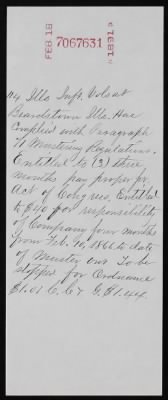 FEB 18
7067631
1891
114 Ills Inft. Vols at
Beardstown Ills. Has
Complied with Paragraph
71 Mustering Regulations.
Entitled to (3) three
months pay proper per
Act of Congress. Entitled
to $40 for responsibility
of Company four months
from Feb. 10, 1865 to date
of Muster out. To be
stopped for Ordnance
$1.01 C. C & G. $1.44.